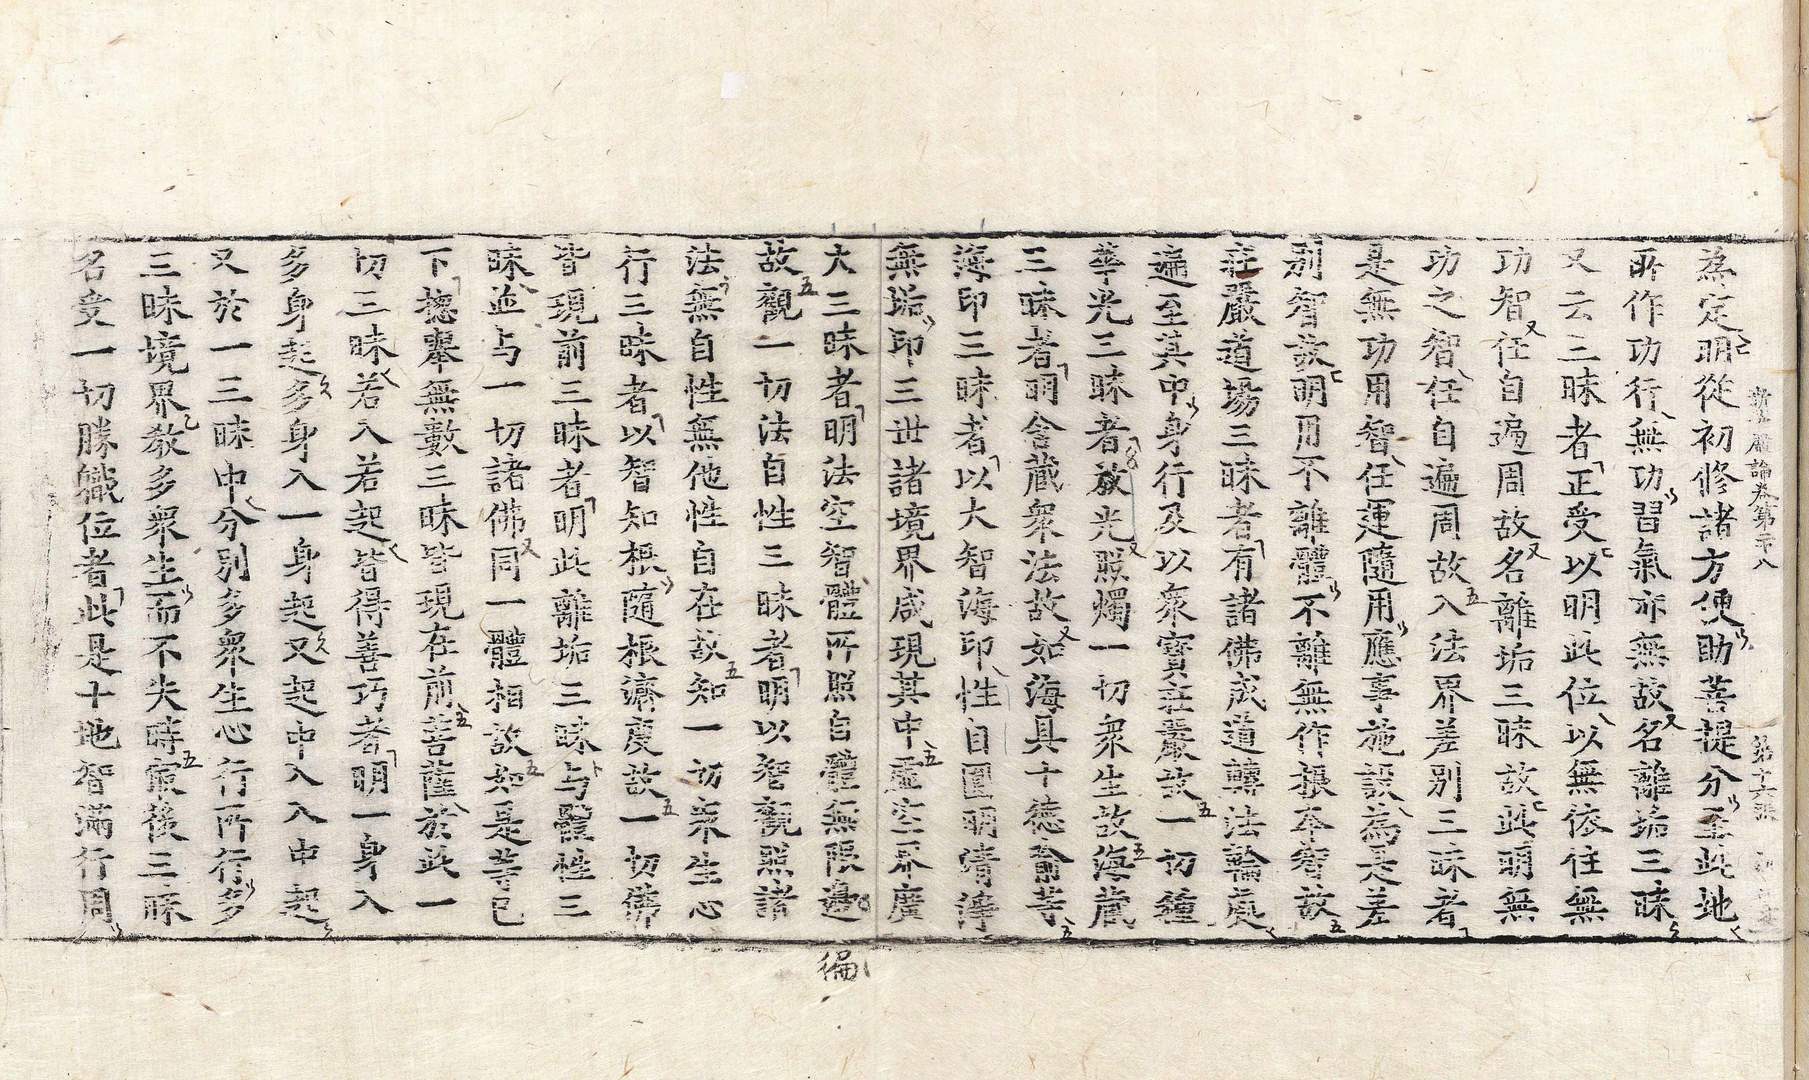 新華嚴論卷第二十八 第十六張
為定明從初修諸方便助菩提分至此地
所作功行無功習氣亦無故名離垢三昧
又云三昧者正受以明此位以無依住無
功智任自遍周故名離垢三昧故此明無
功之智任自遍周故入法界差別三昧者
是無功用智任運隨用應事施設為是差
別智故明用不離體不離無作根本智故
莊嚴道場三昧者有諸佛成道轉法輪處
遍至其中身行及以衆寶莊嚴故一切種
華光三昧者放光照燭一切衆生故海藏
三昧者明含藏衆法故如海具十德會等
海印三昧者以大智海印性自圓明清淨
無垢印三世諸境界咸現其中虛空界廣
大三昧者明法空智體所照自體無限邊
故觀一切法自性三昧者明以智觀照諸
法無自性無他性自在故知一切衆生心
行三昧者以智知根隨根濟度故一切佛
皆現前三昧者明此離垢三昧与體性三
昧並与一切諸佛同一體相故如是等已
下揔舉無數三昧皆現在前菩薩於此一
切三昧若入若起皆得善巧者明一身入
多身起多身入一身起又起中入入中起
又於一三昧中分別多衆生心行所行多
三昧境界教多衆生而不失時㝡後三昧
名受一切勝職位者此是十地智滿行周
徧